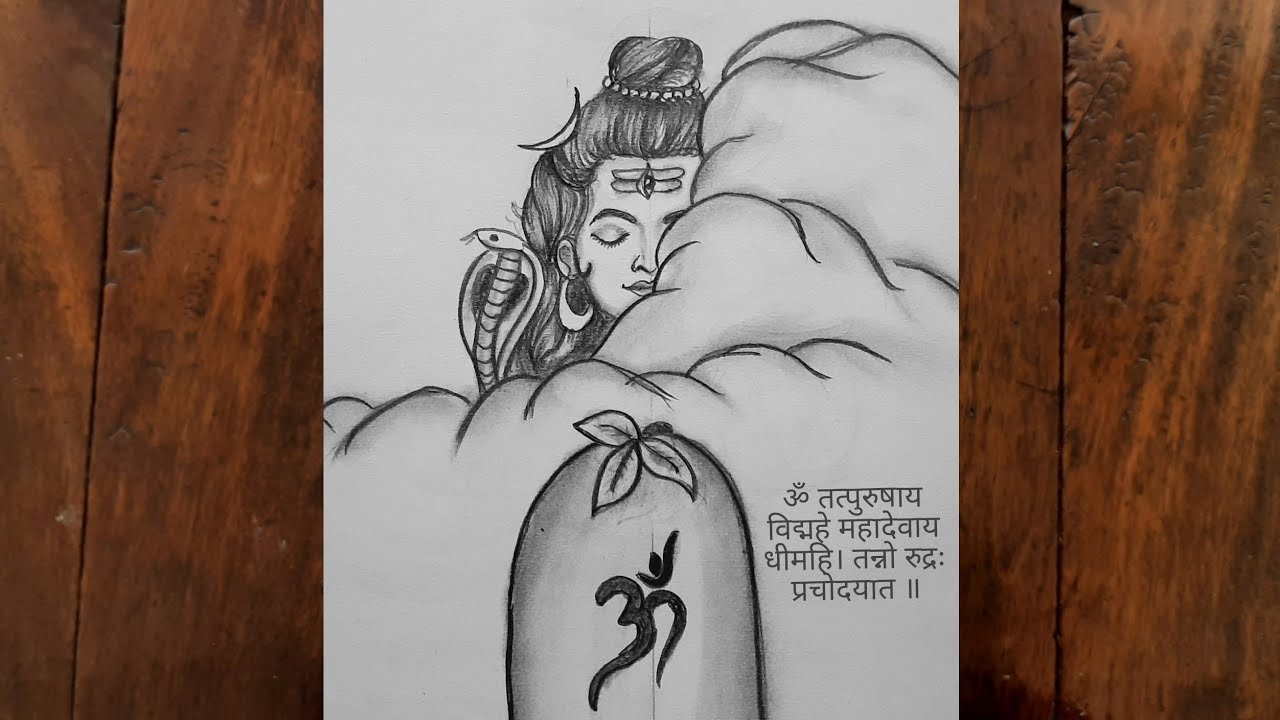 ॐ
ॐ तत्पुरुषाय
विद्महे महादेवाय
धीमहि। तन्नो रुद्रः
प्रचोदयात ॥